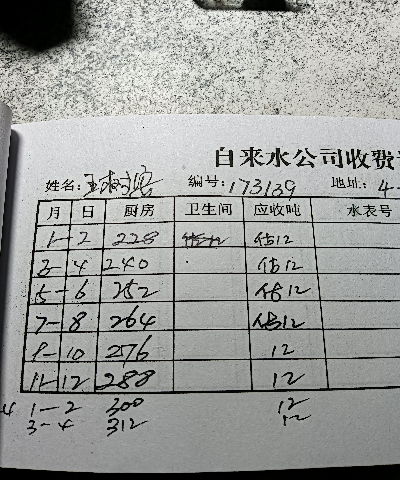 自来水公司收费
姓名: 王 编号: 173139 地址: 4-
月 日 厨房 卫生间 应收吨 水表号
1-2 228 估12
3-4 240 估12
5-6 252 估12
7-8 264 估12
9-10 276 12
11-12 288 12
1-2 300 12
3-4 312 12